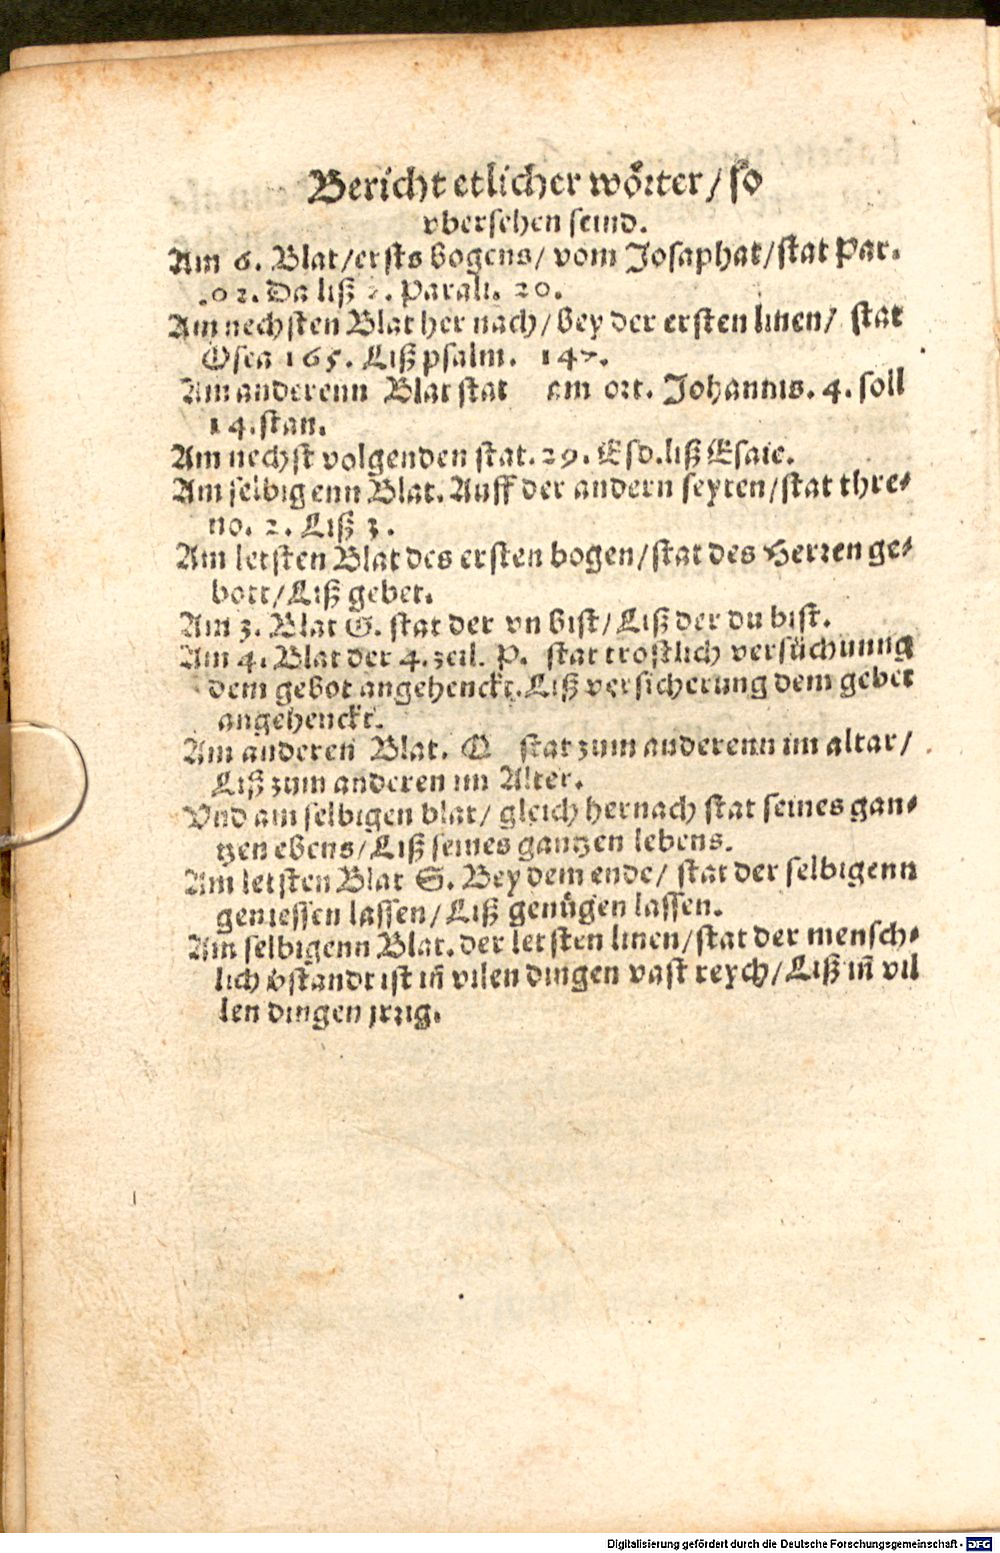 Bericht etlicher wörter/ so
vbersehen seind.
Am 6. Blat/ersts bogens/ vom Josaphat/stat Par.
.02. Da liß 2. Parali. 20.
Am nechsten Blat her nach/ bey der ersten linen/ stat
Osea 165. Liß psalm. 147.
Am anderenn Blat stat am ort. Johannis. 4. soll
14. stan.
Am nechst volgenden stat. 29. Esd. liß Esaie.
Am selbigenn Blat. Auff der andern seyten/stat thre⸗
no. 2. Liß 3.
Am letsten Blat des ersten bogen/stat des Herren ge⸗
bott/Liß gebet.
Am 3. Blat G. stat der vn bist/Liß der du bist.
Am 4. Blat der 4. zeil. P. stat trostlich versuͤchunng
dem gebot angehenckt. Liß versicherung dem gebet
angehenckt.
Am anderen Blat. O stat zum anderenn im altar/
Liß zum anderen im Alter.
Vnd am selbigen blat/ gleich hernach stat seines gan⸗
tzen ebens/Liß seines gantzen lebens.
Am letsten Blat S. Bey dem ende/ stat der selbigenn
geniessen lassen/Liß genuͤgen lassen.
Am selbigenn Blat. der letsten linen/stat der mensch⸗
lich vstandt ist in̄ vilen dingen vast reych/Liß in̄ vil
len dingen jrrig.
Digitalisierung gefördert durch die Deutsche Forschungsgemeinschaft - DFG